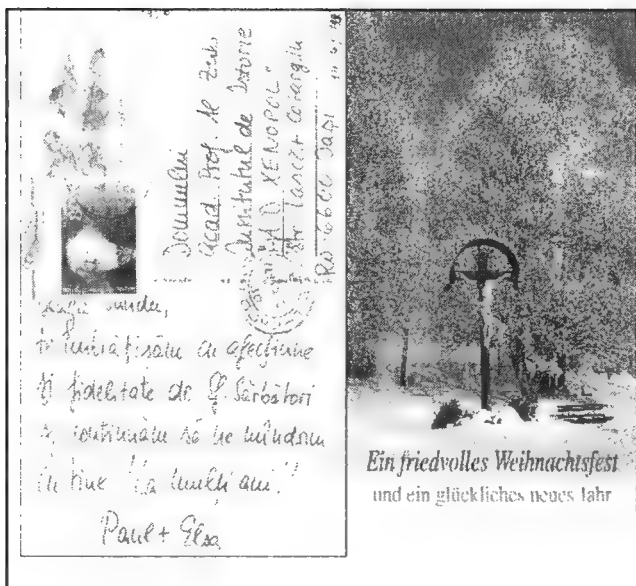 Domnului
Acad. Prof. Al Zub,
Institutul de Istorie
"A D XENOPOL"
Ro 6600 Iaşi
te îmbrăţişăm cu afecţiune
şi fidelitate de Sf. Sărbători
şi continuăm să ne mîndrim
cu tine "La mulţi ani!"
Paul + Elsa
Ein friedvolles Weihnachtsfest
und ein glückliches neues Jahr